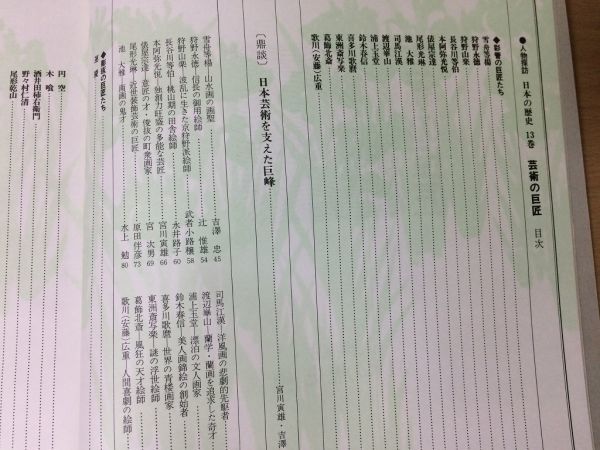 ●人物探訪 日本の歴史 13巻 芸術の巨匠 目次
◆彩管の巨匠たち
雪舟等楊
狩野永徳
狩野山楽
長谷川等伯
本阿弥光悦
俵屋宗達
尾形光琳
池 大雅
司馬江漢
渡辺華山
浦上玉堂
鈴木春信
喜多川歌麿
東洲斎写楽
葛飾北斎
歌川(安藤)広重
〔鼎談〕 日本芸術を支えた巨峰 宮川寅雄・吉澤
雪舟等楊―山水画の画聖 吉澤 忠 45
狩野永徳―信長の御用絵師 辻 惟雄 54
狩野山楽―波乱に生きた京狩野派絵師 武者小路穣 58
長谷川等伯―桃山期の田舎絵師 永井路子 60
本阿弥光悦―独創力旺盛の多能な芸匠 宮川寅雄 66
俵屋宗達―意匠の才・俊抜の町衆画家 宮 次男 69
尾形光琳―近世装飾芸術の巨匠 原田伴彦 73
池 大雅―南画の鬼才 水上 勉 80
司馬江漢―洋風画の悲劇的先駆者
渡辺華山―蘭学・蘭画を追求した奇才
浦上玉堂―漂泊の文人画家
鈴木春信―美人画錦絵の創始者
喜多川歌麿―世界の青楼画家
東洲斎写楽―謎の浮世絵師
葛飾北斎―風狂の天才絵師
歌川(安藤)広重―人間喜劇の絵師
◆彫琢の巨匠たち
円 空
木 喰
酒井田柿右衛門
野々村仁清
尾形乾山